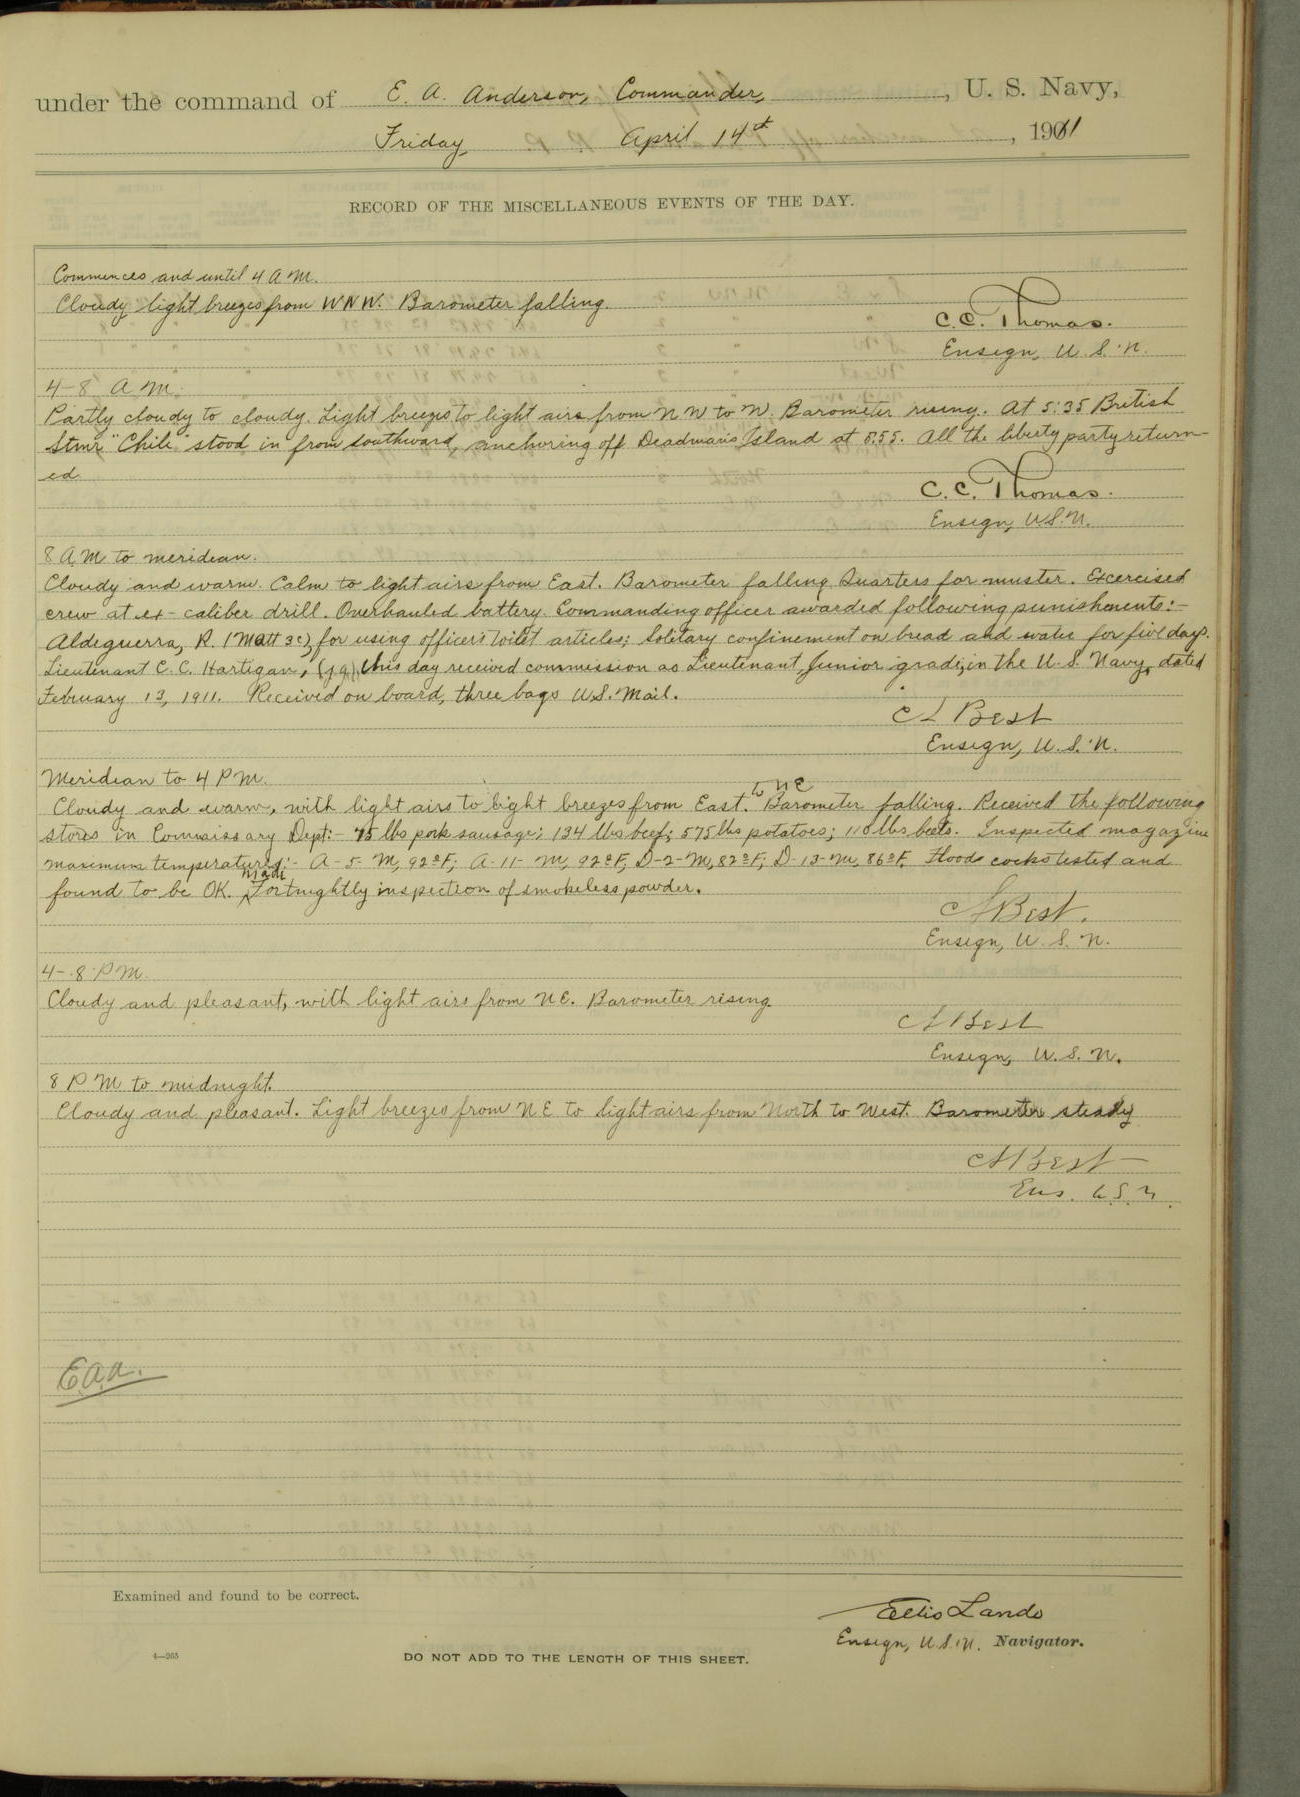 under the command of E. A. Anderson, Commander, , U. S. Navy,
Friday April 14th , 1911
RECORD OF THE MISCELLANEOUS EVENTS OF THE DAY.
Commences and until 4 A M.
Cloudy light breezes from WNW. Barometer falling.
C. C. Thomas.
Ensign, U. S. N.
4-8 A M.
Partly cloudy to cloudy. Light breezes to light airs from NW to W. Barometer rising. At 5:35 British
Stmr "Chili" stood in from southward, anchoring off Deadman's Island at 5:55. All the liberty party return-
ed.
C. C. Thomas.
Ensign, U.S.N.
8 A M to meridian.
Cloudy and warm. Calm to light airs from East. Barometer falling. Quarters for muster. Excercised
crew at ex-caliber drill. Overhauled battery. Commanding officer awarded following punishments:-
Aldeguerra, R. (Matt 3c), for using officers' toilet articles; Solitary confinement on bread and water for five days.
Lieutenant C. C. Hartigan, (j.g.), this day received commission as Lieutenant, Junior grade, in the U. S. Navy, dated
February 13, 1911. Received on board, three bags U.S. Mail.
C L Best
Ensign, U. S. N.
Meridian to 4 P M.
Cloudy and warm, with light airs to light breezes from East. to NE Barometer falling. Received the following
stores in Commissary Dept:- 75 lbs pork sausage; 134 lbs beef; 575 lbs potatoes; 110 lbs beets. Inspected magazine
maximum temperatures:- A-5-M, 92°F; A-11-M, 92°F, D-2-M, 82°F; D-13-M, 86°F. Floods cocks tested and
found to be OK. Made Fortnightly inspection of smokeless powder.
C L Best.
Ensign, U. S. N.
4-8 P M.
Cloudy and pleasant, with light airs from NE. Barometer rising
C L Best
Ensign, U. S. N.
8 P M to midnight.
Cloudy and pleasant. Light breezes from NE to light airs from North to West. Barometer steady
C L Best
Ens. U.S.N.
E.A.A.
Examined and found to be correct.
Ellis Lando
Ensign, U.S.N. Navigator.
4—265
DO NOT ADD TO THE LENGTH OF THIS SHEET.